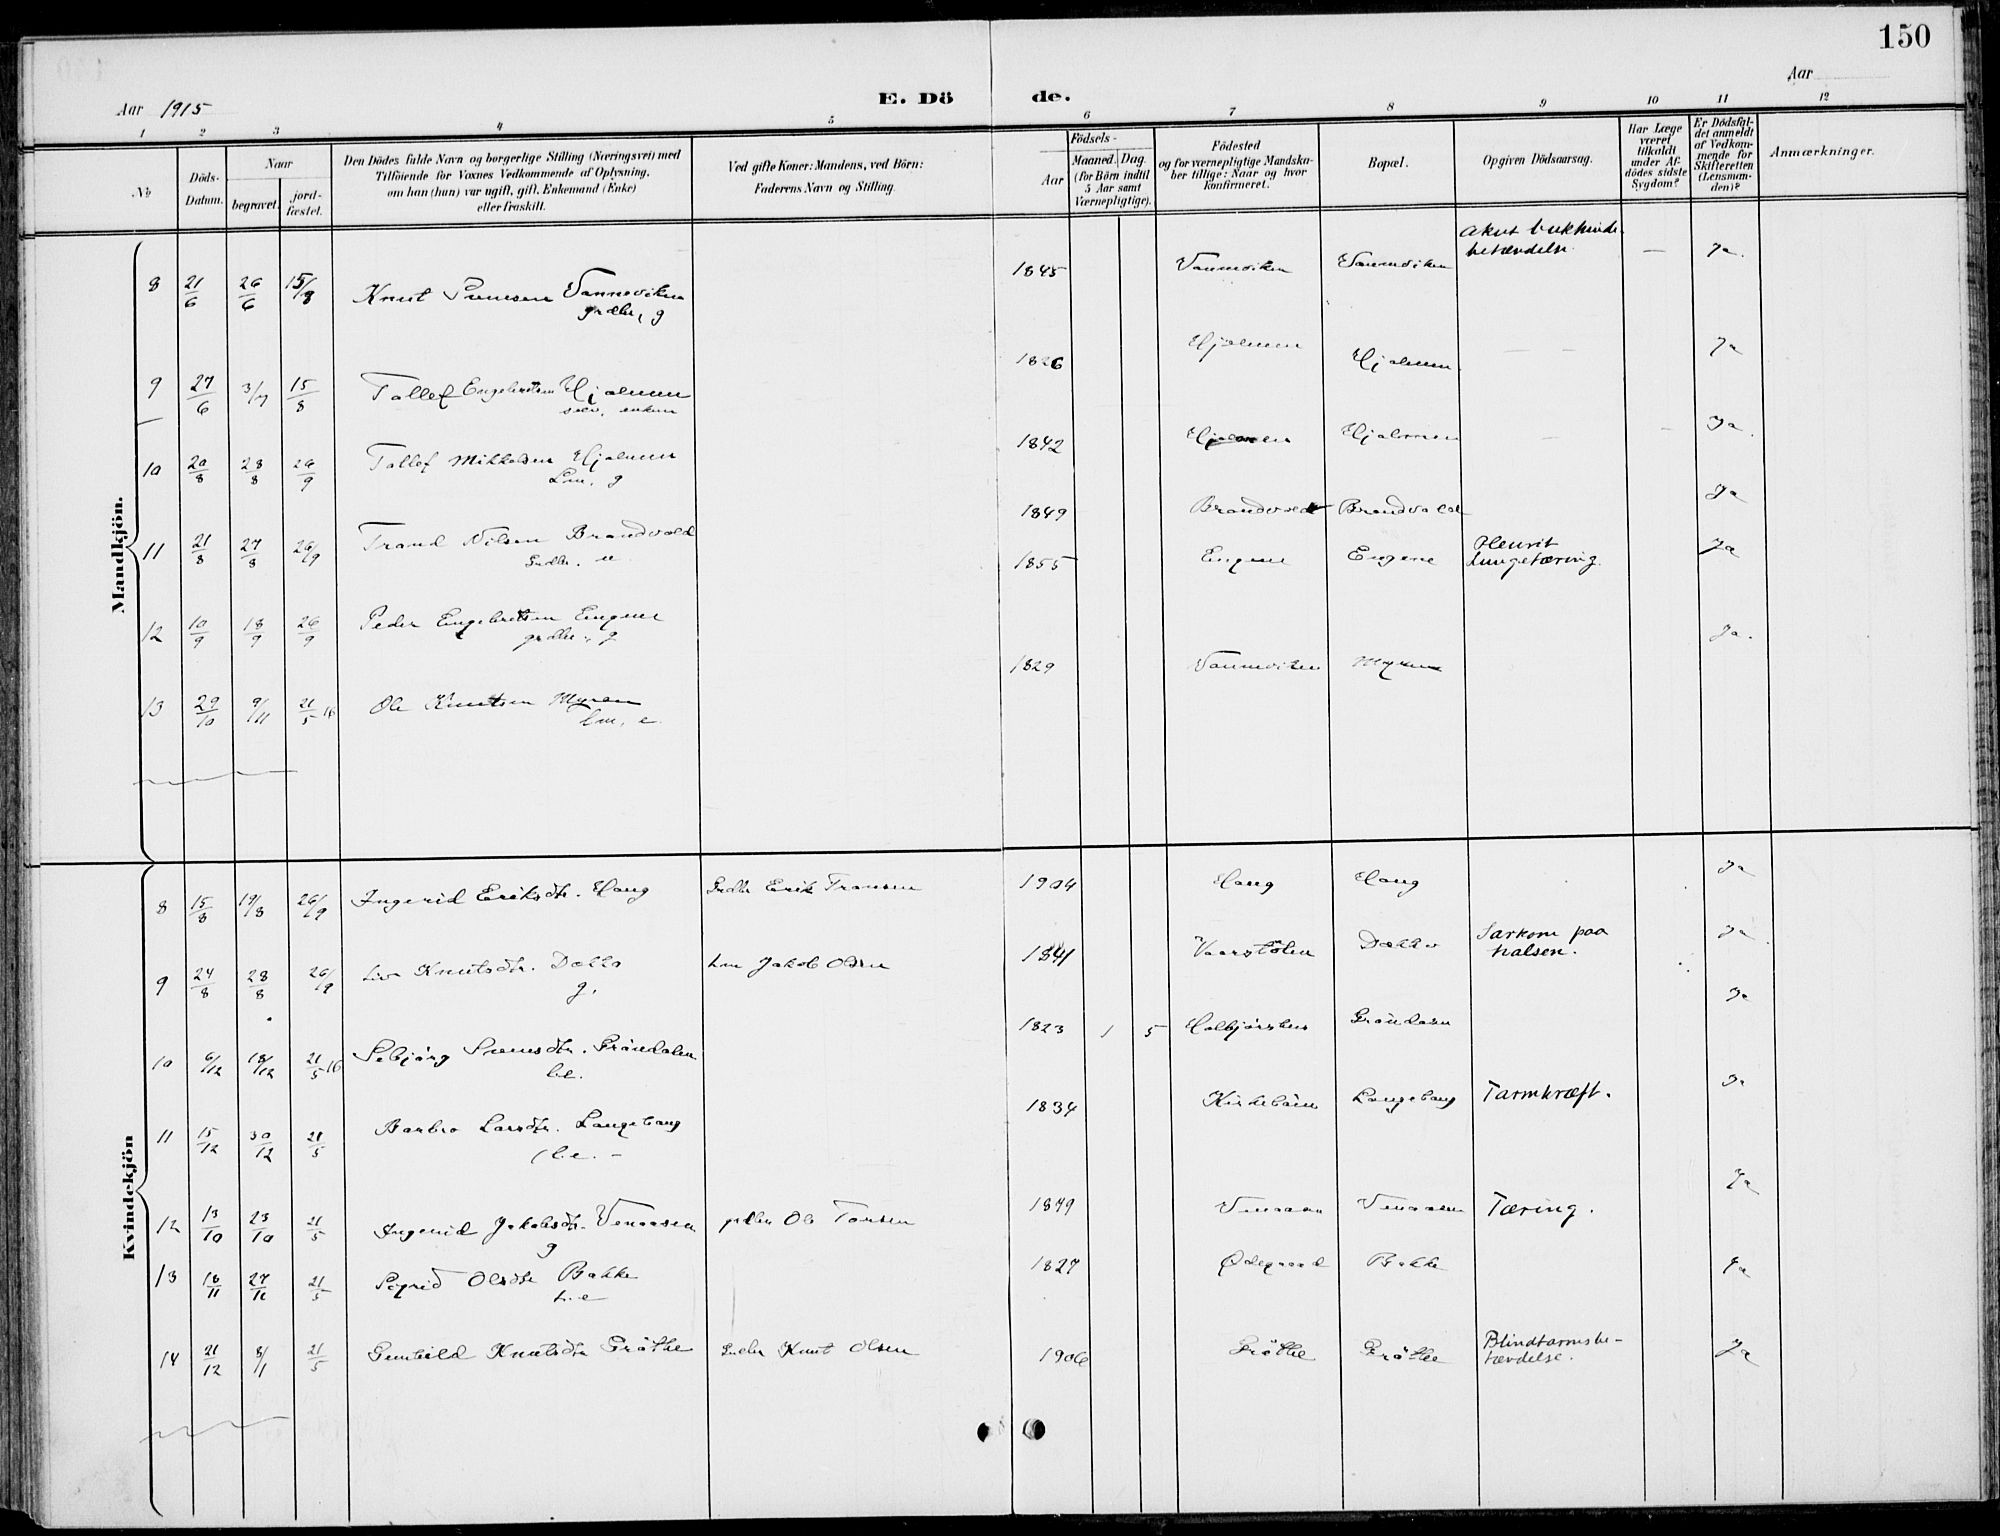 150
Aar
Aar 1915
E. Dö de.
1 2 3 4 5 6 7 8 9 10 11 12
No
Döds-Datum.
Naar
begravet.
jord-fæstet.
Den Dödes fulde Navn og borgerlige Stilling (Næringsvei) med
Tilföiende for Voxnes Vedkommende af Oplysning,
om han (hun) var ugift, gift, Enkemand (Enke)
eller fraskilt.
Ved gifte Koner: Mandens, ved Börn:
Faderens Navn og Stilling.
Födsels-
Aar
Maaned. Dag.
(for Börn indtil
5 Aar samt
Værnepligtige).
Födested
og for værnepligtige Mandska-
ber tillige: Naar og hvor
konfirmeret.
Bopæl.
Opgiven Dödsaarsag.
Har Læge
været
tilkaldt
under Af-
dödes sidste
Sygdom?
Er Dödsfal-
det anmeldt
af Vedkom-
mende for
Skifteretten
(Lensman-
den)?
Anmærkninger.
Mandkjön.
8 21/6 26/6 15/8 Knut Svensen Vanneviken 1845 Vanneviken Vanneviken akut bukhinde-
betændelse. — Ja.
grdbr, g
9 27/6 3/7 15/8 Tollef Engebretsen Hjalmen 1826 Hjalmen Hjalmen — — Ja
10 20/8 28/8 26/9 Tollef Mikkelsen Hjalmen 1842 Hjalmen Hjalmen — — Ja.
Lm. g
11 21/8 27/8 26/9 Trond Nilsen Brandvold 1849 Brandvold Brandvold Ja
Grdbr. u.
12 10/9 18/9 26/9 Peder Engebretsen Engene 1855 Engene Engene Pleurit
Lungetæring. Ja
grdbr., g
13 29/10 9/11 21/5 16 Ole Knutsen Myren 1829 Vanneviken Myren Ja.
Lm, e.
Kvindekjön
8 15/8 19/8 26/9 Ingerid Eriksdtr. Haug Grdbr Erik Tronsen 1904 Haug Haug Ja
9 24/8 28/8 26/9 Liv Knutsdtr. Dokka Lm Jakob Olsen 1841 Vaarstölen Dokka Sarkom paa
halsen. Ja.
g.
10 6/12 18/12 21/5 16 Sebjörg Svensdtr. Gröndalen 1823 1 5 Gröndalen Ja
l.e.
11 15/12 30/12 21/5 Barbro Larsdtr. Langehaug 1834 Kirkeböen Langehaug Tarmkræft. Ja
l.e. —
12 13/10 23/10 21/5 Ingerid Jakobsdtr. Venaasen grdbr Ole Torsen 1849 Venaasen Venaasen Tæring. Ja
g
13 18/11 27/11 21/5 Sigrid Olsdtr Bakke 1827 Ödegaard Bakke Ja
L.e
14 21/12 8/1 21/5 Gunhild Knutsdtr Gröthe Grdbr Knut Olsen 1906 Gröthe Gröthe Blindtarmsbe-
tændelse. Ja